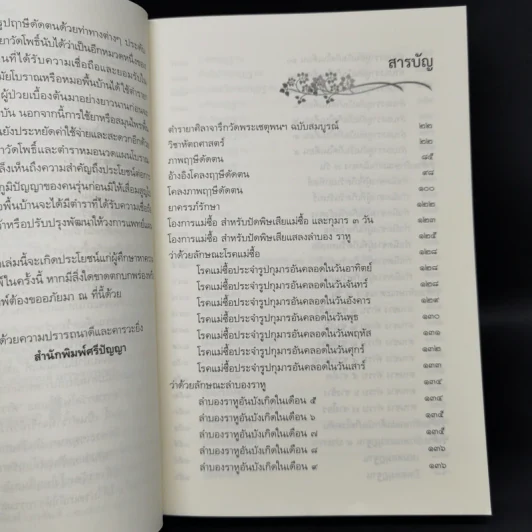 รูปฤาษีดัดตนด้วยท่าทางต่างๆ ประดับ
ยาวัดโพธิ์นับได้ว่าเป็นอีกหมวดหนึ่งของ
นที่ได้รับความเชื่อถือและยอมรับใน
มัยโบราณหรือหมอพื้นบ้านได้ใช้ตำรา
ผู้ป่วยเบื้องต้นมาอย่างยาวนานก่อน
บัน นอกจากนี้การใช้ยาหรือสมุนไพรพื้น
นยังประหยัดค่าใช้จ่ายและสะดวกอีกด้วย
โพธิ์และตำราหมอนวดแผนโบราณ
ลึงเห็นถึงความสำคัญประโยชน์ต่อการ
ภูมิปัญญาของคนรุ่นก่อนมิให้เสื่อมสูญไป
อพื้นบ้านจะได้มีตำราที่ได้รับความเชื่อถือ
าหรือปรับปรุงพัฒนาให้วงการแพทย์แผน
เล่มนี้จะเกิดประโยชน์แก่ผู้ศึกษาหาความ
ในครั้งนี้ หากมีสิ่งใดขาดตกบกพร่องทาง
พ์ต้องขออภัยมา ณ ที่นี้ด้วย
ด้วยความปรารถนาดีและคารวะยิ่ง
สำนักพิมพ์ศรีปัญญา
สารบัญ
ตำรายาศิลาจารึกวัดพระเชตุพนฯ ฉบับสมบูรณ์ ๒๒
วิชาหัตถศาสตร์ ๒๒
ภาพฤๅษีดัดตน ๘๕
อ้างอิงโคลงฤๅษีดัดตน ๙๘
โคลงภาพฤๅษีดัดตน ๑๐๐
ยาครรภ์รักษา ๑๒๒
โองการแม่ซื้อ สำหรับปัดพิษเสียแม่ซื้อ และกุมาร ๓ วัน ๑๒๓
โองการแม่ซื้อ สำหรับปัดพิษเสียแสลงลำบอง ราหู ๑๒๕
ว่าด้วยลักษณะโรคแม่ซื้อ ๑๒๘
โรคแม่ซื้อประจำรูปกุมารอันคลอดในวันอาทิตย์ ๑๒๘
โรคแม่ซื้อประจำรูปกุมารอันคลอดในวันจันทร์ ๑๒๘
โรคแม่ซื้อประจำรูปกุมารอันคลอดในวันอังคาร ๑๒๙
โรคแม่ซื้อประจำรูปกุมารอันคลอดในวันพุธ ๑๓๐
โรคแม่ซื้อประจำรูปกุมารอันคลอดในวันพฤหัส ๑๓๑
โรคแม่ซื้อประจำรูปกุมารอันคลอดในวันศุกร์ ๑๓๒
โรคแม่ซื้อประจำรูปกุมารอันคลอดในวันเสาร์ ๑๓๓
ว่าด้วยลักษณะลำบองราหู ๑๓๔
ลำบองราหูอันบังเกิดในเดือน ๕ ๑๓๔
ลำบองราหูอันบังเกิดในเดือน ๖ ๑๓๕
ลำบองราหูอันบังเกิดในเดือน ๗ ๑๓๕
ลำบองราหูอันบังเกิดในเดือน ๘ ๑๓๖
ลำบองราหูอันบังเกิดในเดือน ๙ ๑๓๖